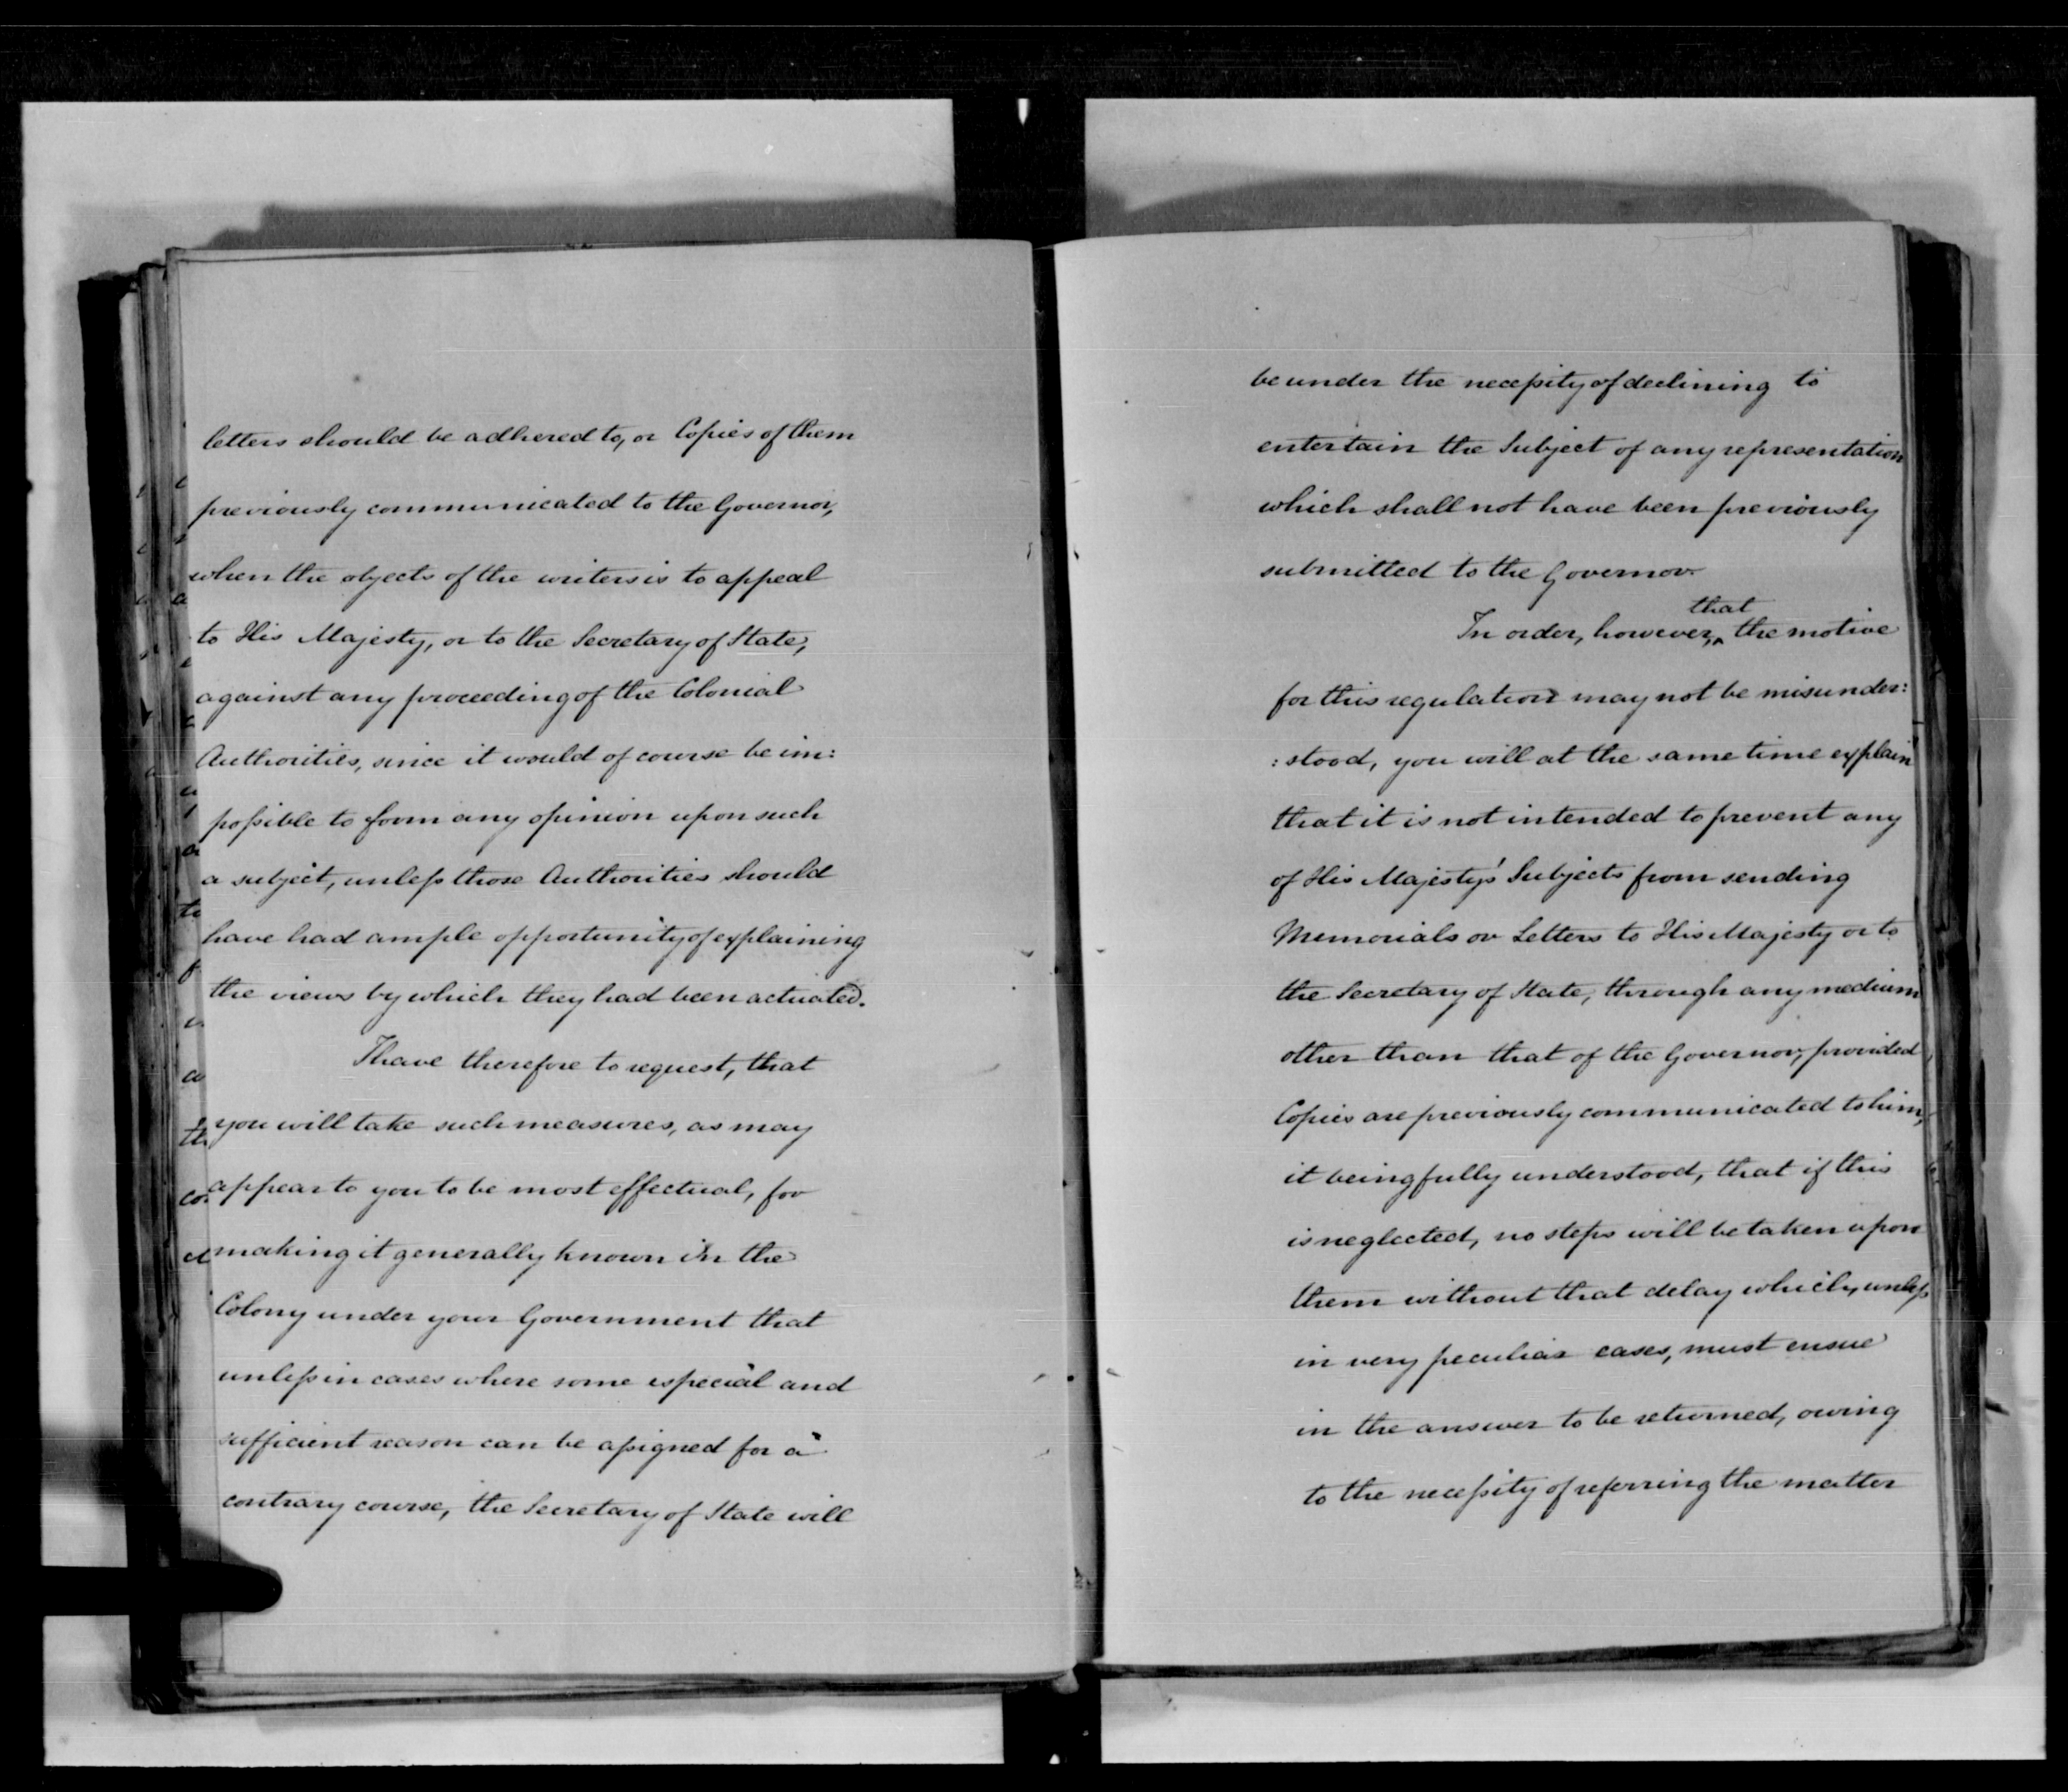 letters should be adhered to, or Copies of them
previously communicated to the Governor,
when the objects of the writers is to appeal
to His Majesty, or to the Secretary of State,
against any proceeding of the Colonial
Authorities, since it would of course be im:
possible to form any opinion upon such
a subject, unless those Authorities should
have had ample opportunity of explaining
the views by which they had been actuated.
I have therefore to request, that
you will take such measures, as may
appear to you to be most effectual, for
making it generally known in the
Colony under your Government that
unless in cases where some especial and
sufficient reason can be assigned for a
contrary course, the Secretary of State will
be under the necessity of declining to
entertain the Subject of any representation
which shall not have been previously
submitted to the Governor.
In order, however, that the motive
for this regulation may not be misunder:
:stood, you will at the same time explain
that it is not intended to prevent any
of His Majesty's Subjects from sending
Memorials or Letters to His Majesty or to
the Secretary of State, through any medium
other than that of the Governor, provided
Copies are previously communicated to him,
it being fully understood, that if this
is neglected, no steps will be taken upon
them without that delay which, unless
in very peculiar cases, must ensue
in the answer to be returned, owing
to the necessity of referring the matter